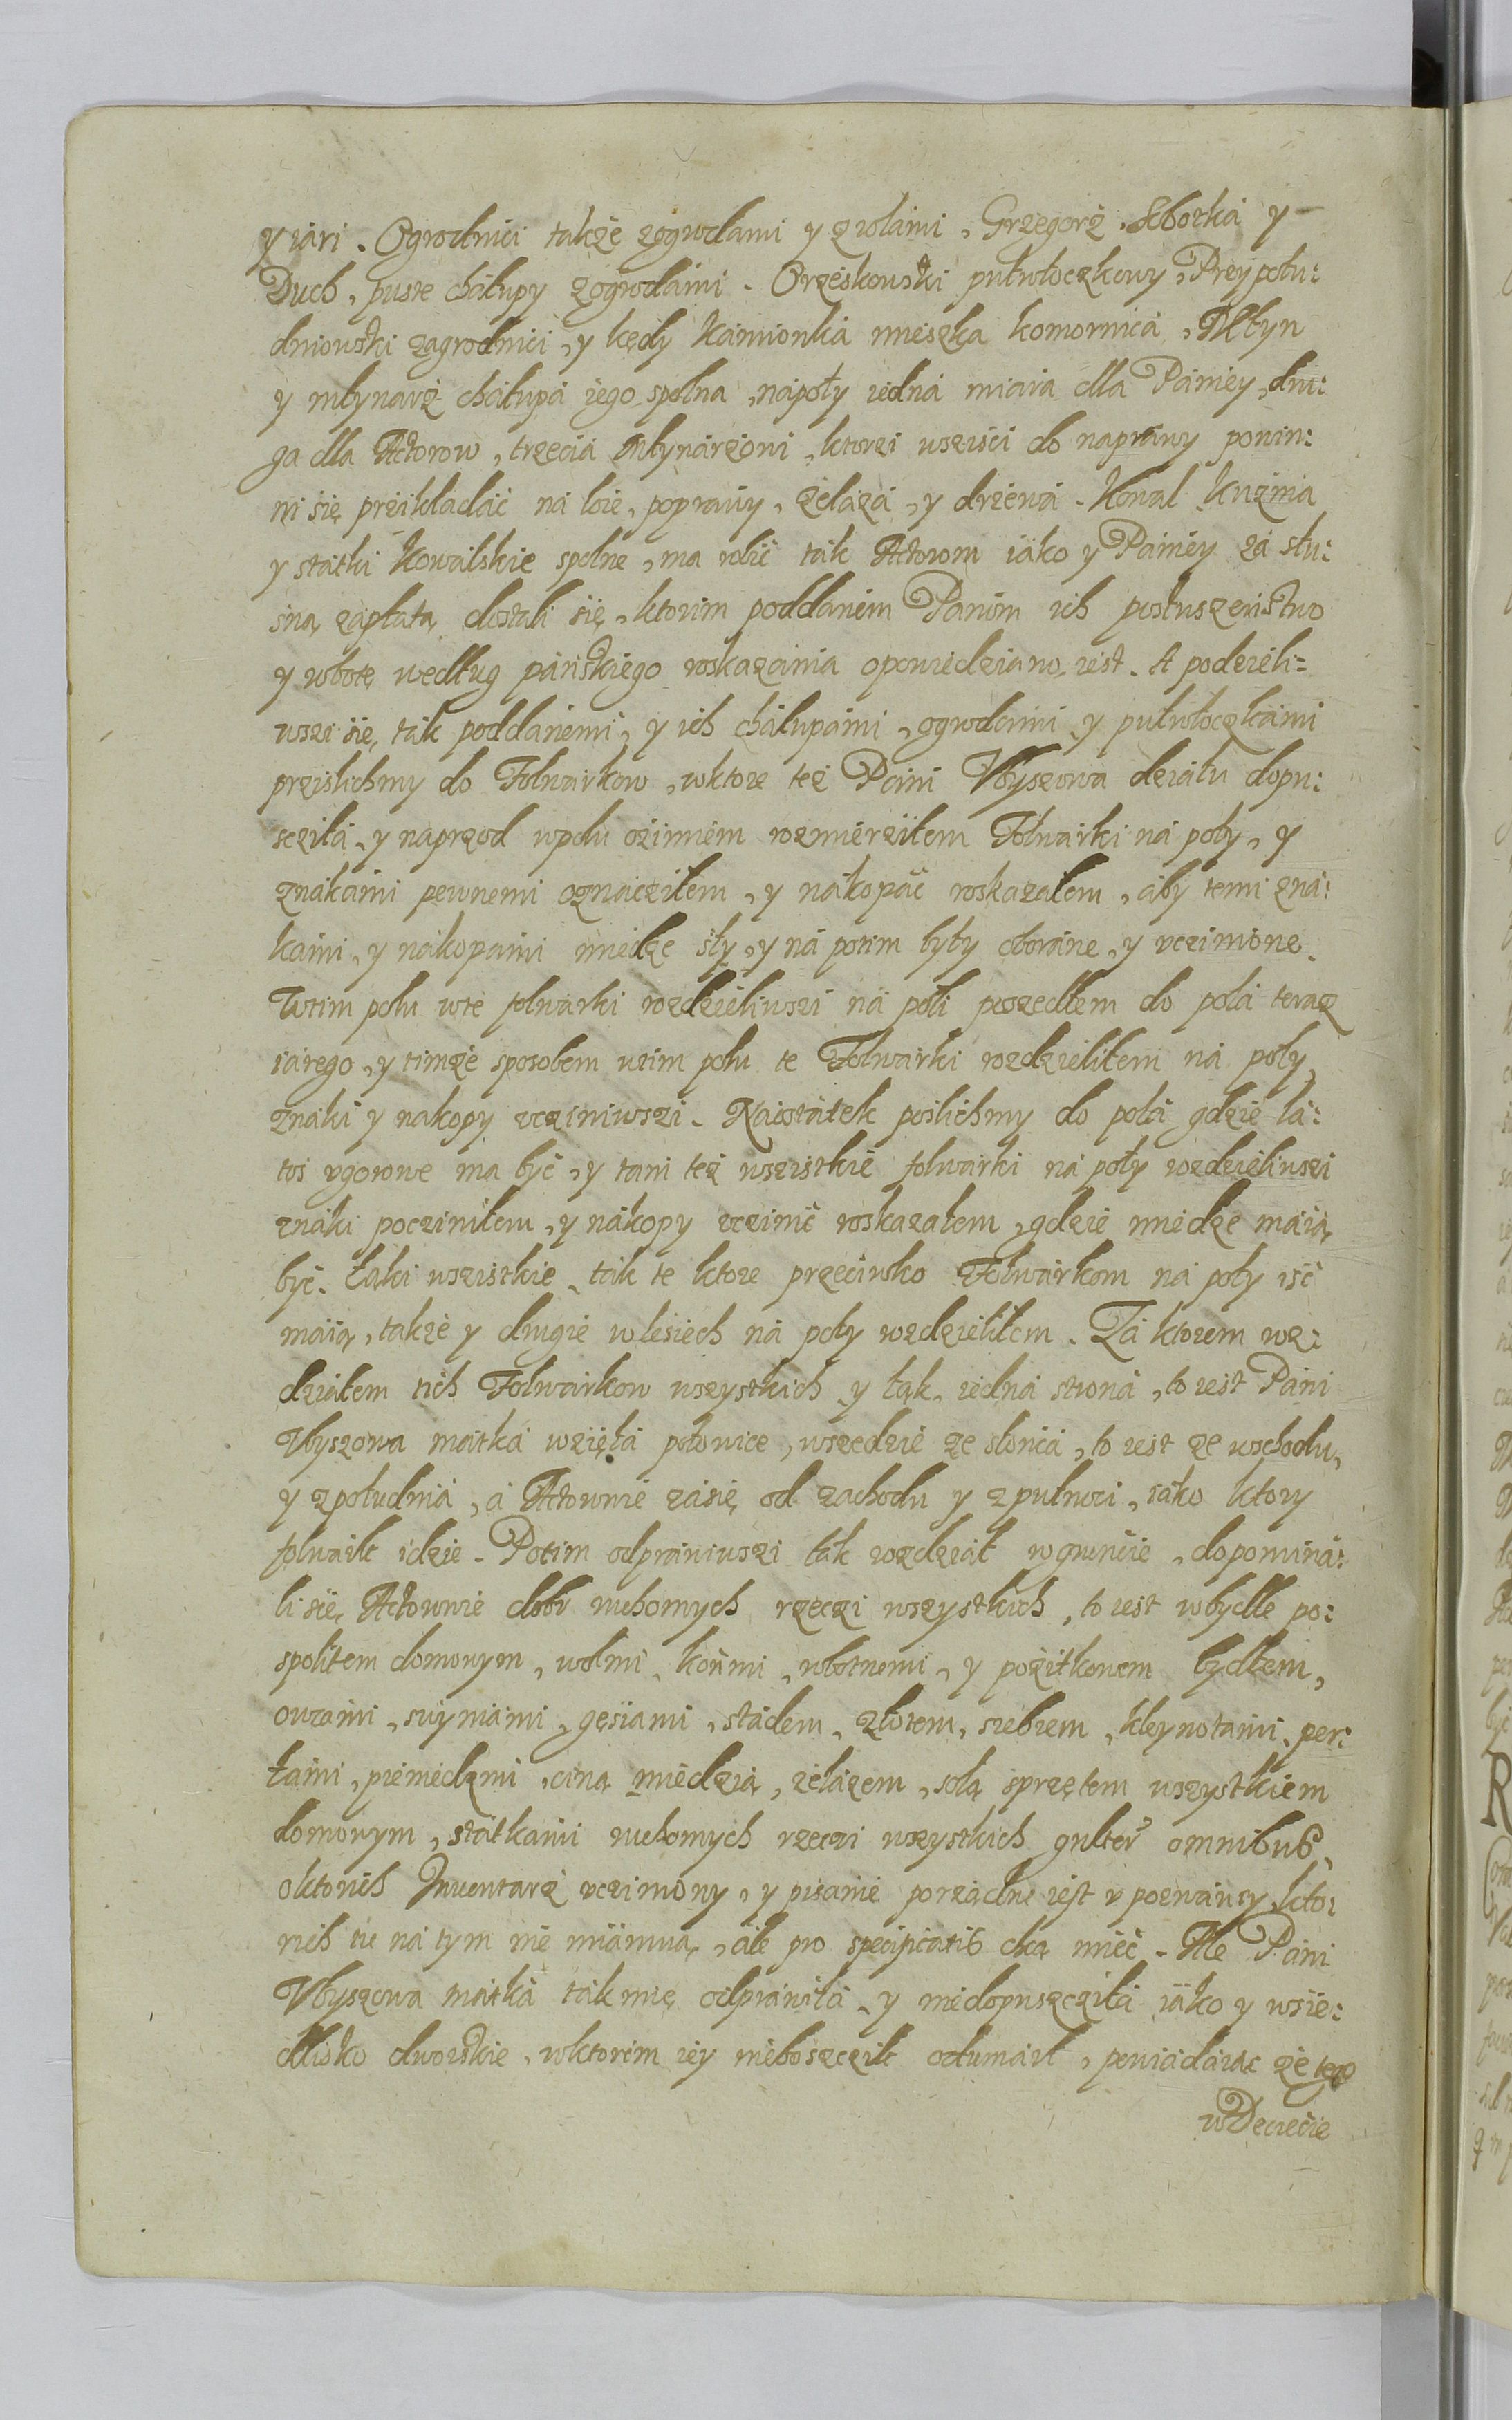 y iári . Ogrodnici tákże zogrodami y zrolámi , Grzegorz . Sborká y
Duch , puste cháłupy zogrodámi . Orzeskowski pułwłoczkowy , Przypołu:
dniowski zagrodnici , y kędy Kámionká mieszka komornicá , Młyn
y młynarz cháłupá iego spolna , nápoły iedná miárá dla Pániey , dru:
ga dla Actorow , trzecia Młynárzowi , ktorzi wszisci do napráwy powin:
ni się prżikładáć ná koie , popráwy , żelázá , y drzewá . Kowal Kuźmá
y státki Kowálskie spolne , ma robić ták Actorom iáko y Pániéy zá słu:
sną zapłatą dostáli się , ktorim poddáném Pánóm ich posłuszenstwo
y robotę według páńskiego roskazánia opowiedziano iest . A podzieli=
wszi się ták poddánemi , y ich cháłupámi , ogrodámi y pułwłoczkámi
przislichmy do Folwárkow , wktore też Páni Vbyszowa działu dopu:
scziłá , y naprzod wpolu oźimiém rozmiérziłem Folwárki ná poły , y
znákámi pewnemi oznácziłem , y nákopáć roskazałem , áby temi zná:
kámi , y nákopámi miedze śły , y ná potim były oboráne , y vczinione .
Wtim polu wte folwárki rozdzieliwszi ná poli poszedłem do polá teraz
iárego , y timże sposobem wtim polu te Folwárki rozdzieliłem ná poły
znáki y nakopy vcziniwszi . Náostátek poslichmy do polá gdzie lá:
tos vgorowe ma być , y tám też wszistkie folwárki ná poły rozdzieliwszi
znáki pocziniłem , y nákopy vczinić roskazałem , gdzie miedze máią
być . Łąki wszistkie , ták te ktore przeciwko Folwárkom ná poły iść
máią , tákże y drugie wlesiech ná poły rozdzieliłem . Zá ktorem roz:
dziáłem tich Folwárkow wszystkich y łąk , iedná stroná , to iest Páni
Vbyszowa mátká wzięłá połowice , wszedzie ze słońcá , to iest ze wschodu ,
y zpołudnia , á Actorowie zásię od zachodu y zpułnoci , iáko ktory
folwárk idzie . Potim odpráwiwszi ták rozdziáł wgruncie , dopominá:
li się Actorowie dobr ruchomych rzeczi wszystkich , to iest wbydle po:
spolitem domowym , wołmi , końmi , robotnemi , y pożitkowem bydłem ,
owcámi , swyniámi , gęsiámi , stádem , złotem , srebrem , kleynotámi , per:
łámi , pieniedzmi , ciną miedzią , żelázem , solą sprzętem wszystkiem
domowym , státkámi ruchomych rzeczi wszystkich gnlter omnibus ,
oktorich Inwentarz vczimony , y pisanie porządne iest v poznáńcy , kto:
rich tu ná tym nie miánuią , ále pro specificatis chcą mieć . Ale Páni
Vbyszowa mátká ták mię odpráwiłá , y niedopuszcziłá iáko y wsie:
dlisko dworskie , wktorim iéy niéboszczik odumárł , powiádáiąc że tego
wDecrecie